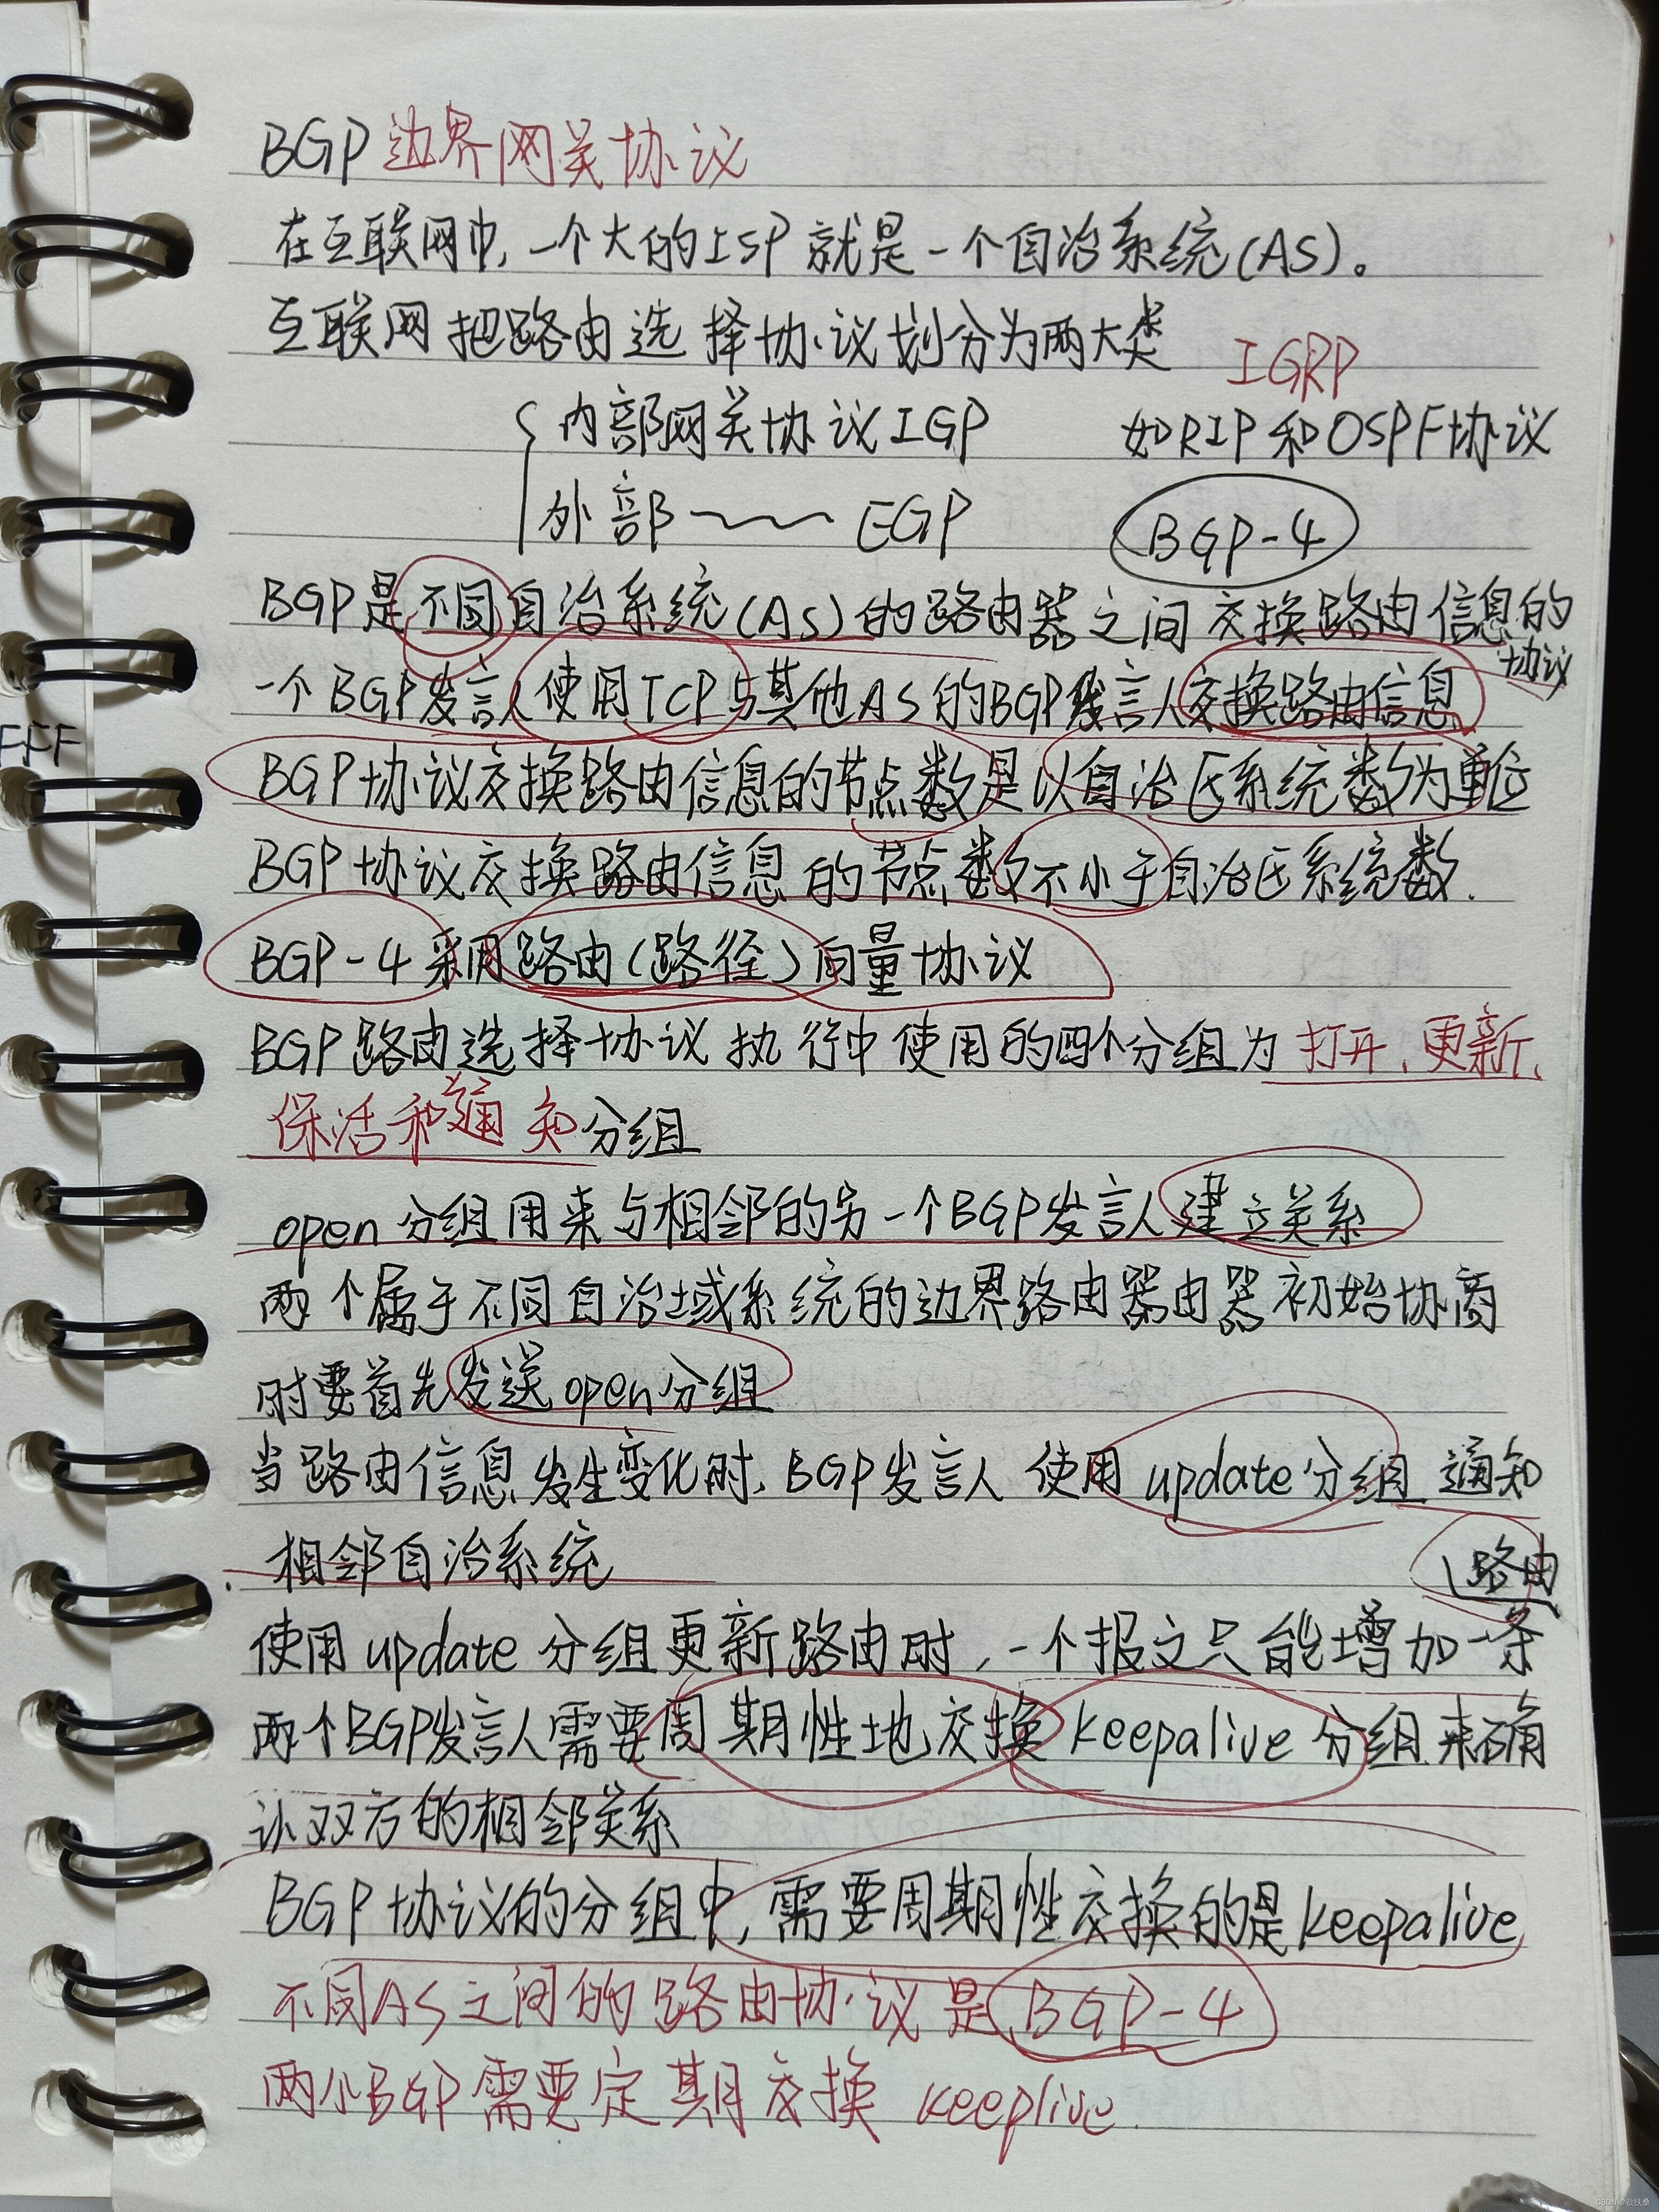 BGP 边界网关协议
在互联网中,一个大的ISP 就是一个自治系统(AS)。
互联网把路由选择协议划分为两大类
IGRP
内部网关协议IGP 如RIP和OSPF协议
外部～～EGP BGP-4
BGP是不同自治系统(AS)的路由器之间交换路由信息的
协议
一个BGP发言人使用TCP与其他AS的BGP发言人交换路由信息
FFF
BGP协议交换路由信息的节点数是以自治区系统数为单位
BGP协议交换路由信息的节点数不小于自治区系统数.
BGP-4采用路由(路径)向量协议
BGP路由选择协议执行中使用的四个分组为打开、更新、
保活和通知分组
open分组用来与相邻的另一个BGP发言人建立关系
两个属于不同自治域系统的边界路由器由器初始协商
时要首先发送open分组
当路由信息发生变化时,BGP发言人使用update分组通知
相邻自治系统
路由
使用update分组更新路由时,一个报文只能增加一条
两个BGP发言人需要周期性地交换keepalive分组来确
认双方的相邻关系
BGP协议的分组中,需要周期性交换的是keepalive
不同AS之间的路由协议是BGP-4
两个BGP需要定期交换 keeplive.
CSDN @欲扶桑